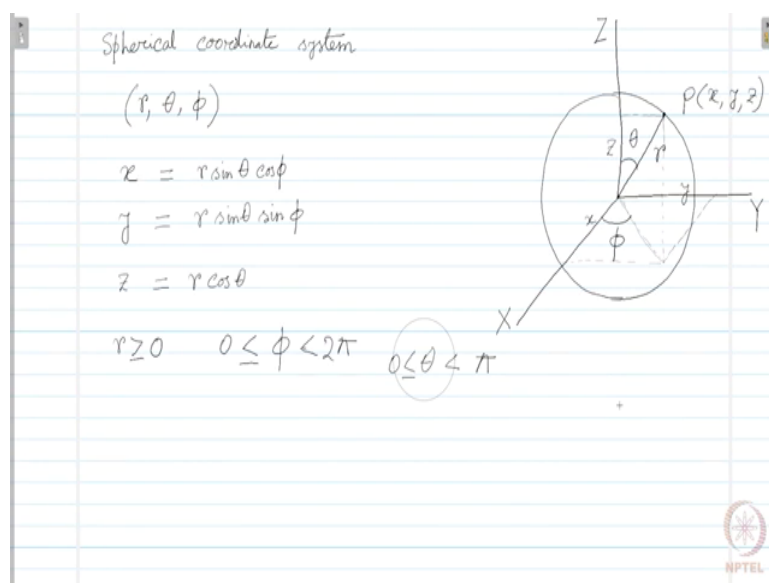 Spherical coordinate system
(r, θ, ϕ)
x = r sinθ cosϕ
y = r sinθ sinϕ
z = r cosθ
r ≥ 0 0 ≤ ϕ < 2π 0 ≤ θ < π
Z
P(x, y, z)
z θ r
y
x
Y
ϕ
X
NPTEL